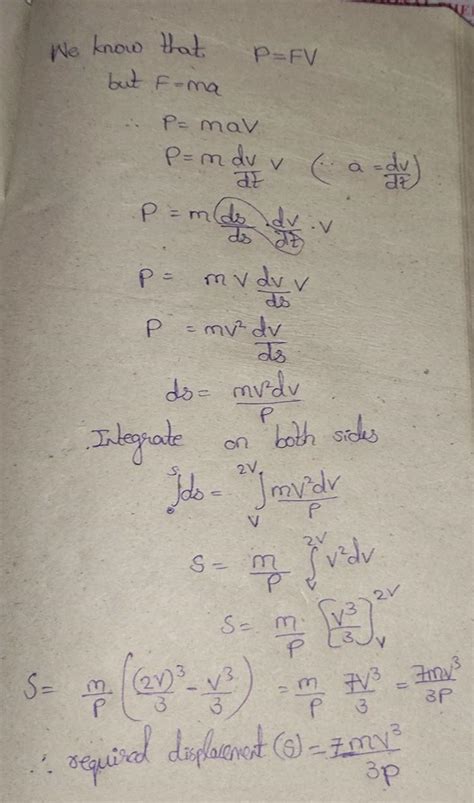 We know that P=FV
but F=ma
∴ P= maV
P= m dv/dt v (∵ a = dv/dt)
P = m ds/ds · dv/dt · v
P = m v dv/ds v
P = mv² dv/ds
ds = mv²dv/P
Integrate on both sides
∫₀ˢ ds = ∫ᵥ²ⱽ mv²dv/P
S = m/P ∫ᵥ²ⱽ v²dv
S = m/P [v³/3]ᵥ²ⱽ
S = m/P ((2v)³/3 - v³/3) = m/P 7v³/3 = 7mv³/3P
∴ required displacement (s) = 7mv³/3P